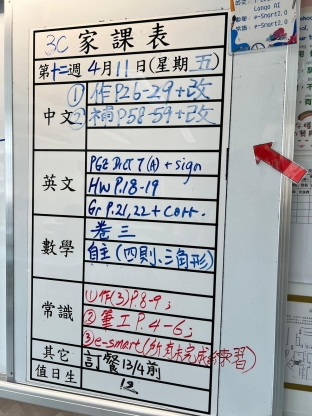 Langa AI
e-Smart2.0
e-Smart2.0
3C 家課表
第十二週 4月11日(星期五)
中文
① 作P26-29+改
② 補P58-59+改
英文
PGE Dict 7 (A) + sign
HW P.18-19
Gr P.21,22 + corr.
數學
卷三
自主(四則、三角形)
常識
①作(3)P.8-9;
②筆工P.4-6;
③e-smart(所有未完成的練習)
其它
訂餐13/4前
值日生
12